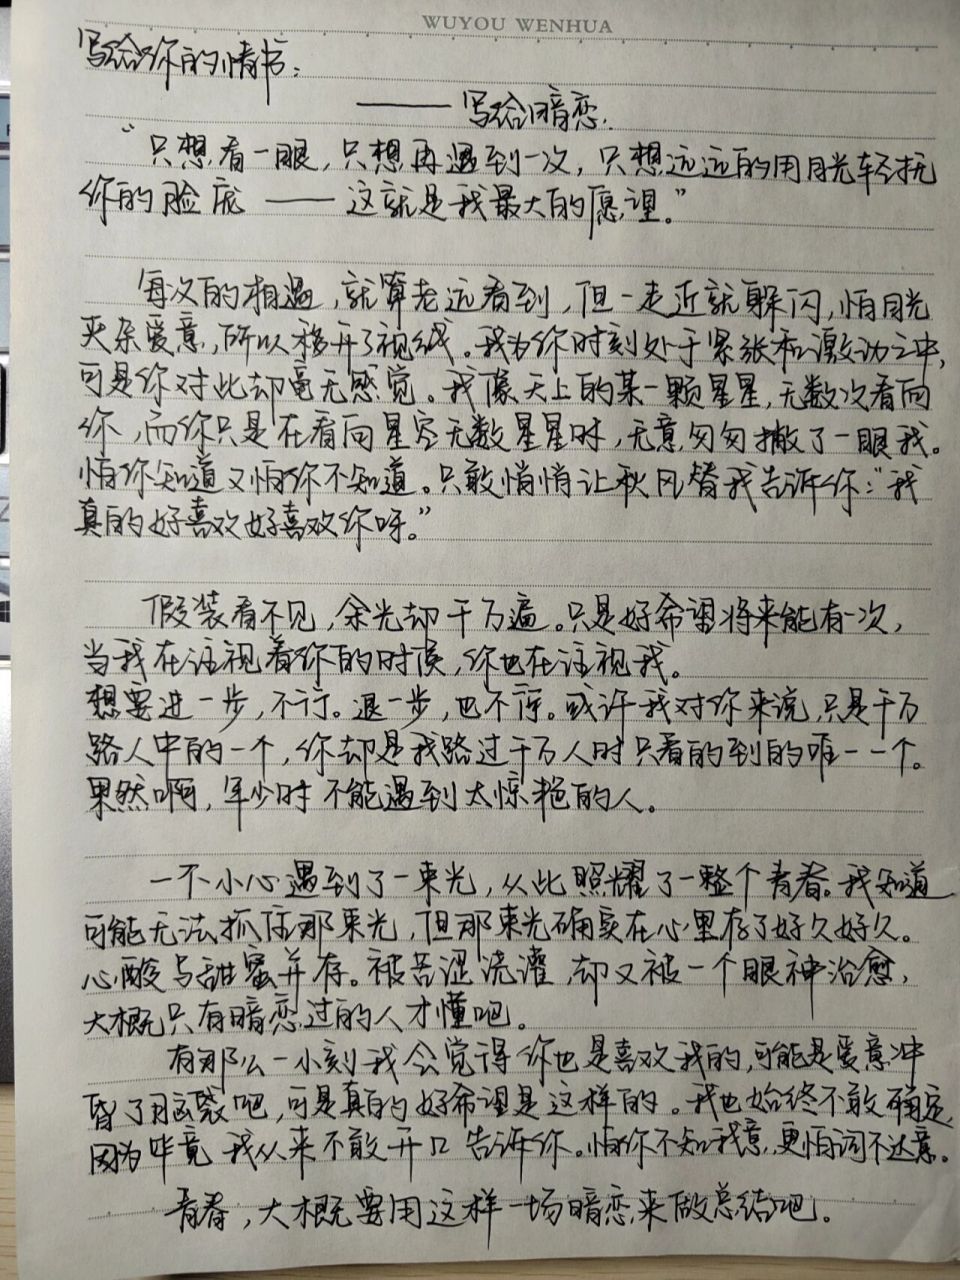 WUYOU WENHUA
写给你的情书：
——写给暗恋.
“只想看一眼，只想再遇到一次，只想远远的用目光轻抚
你的脸庞——这就是我最大的愿望。”
每次的相遇，就算老远看到，但一走近就躲闪，怕目光
夹杂爱意，所以移开了视线。我为你时刻处于紧张和激动之中，
可是你对此却毫无感觉。我像天上的某一颗星星，无数次看向
你，而你只是在看向星空无数星星时，无意匆匆撇了一眼我。
怕你知道又怕你不知道。只敢悄悄让秋风替我告诉你：“我
真的好喜欢好喜欢你呀。”
假装看不见，余光却千万遍。只是好希望将来能有一次，
当我在注视着你的时候，你也在注视我。
想要进一步，不行。退一步，也不行。或许我对你来说，只是千万
路人中的一个，你却是我路过千万人时只看的到的唯一一个。
果然啊，年少时不能遇到太惊艳的人。
一不小心遇到了一束光，从此照耀了一整个青春。我知道
可能无法抓住那束光，但那束光确实在心里存了好久好久。
心酸与甜蜜并存。被苦涩浇灌，却又被一个眼神治愈，
大概只有暗恋过的人才懂吧。
有那么一小刻我会觉得你也是喜欢我的，可能是爱意冲
昏了脑袋吧，可是真的好希望是这样的。我也始终不敢确定，
因为毕竟我从来不敢开口告诉你。怕你不知我意，更怕词不达意。
青春，大概要用这样一场暗恋来做总结吧。